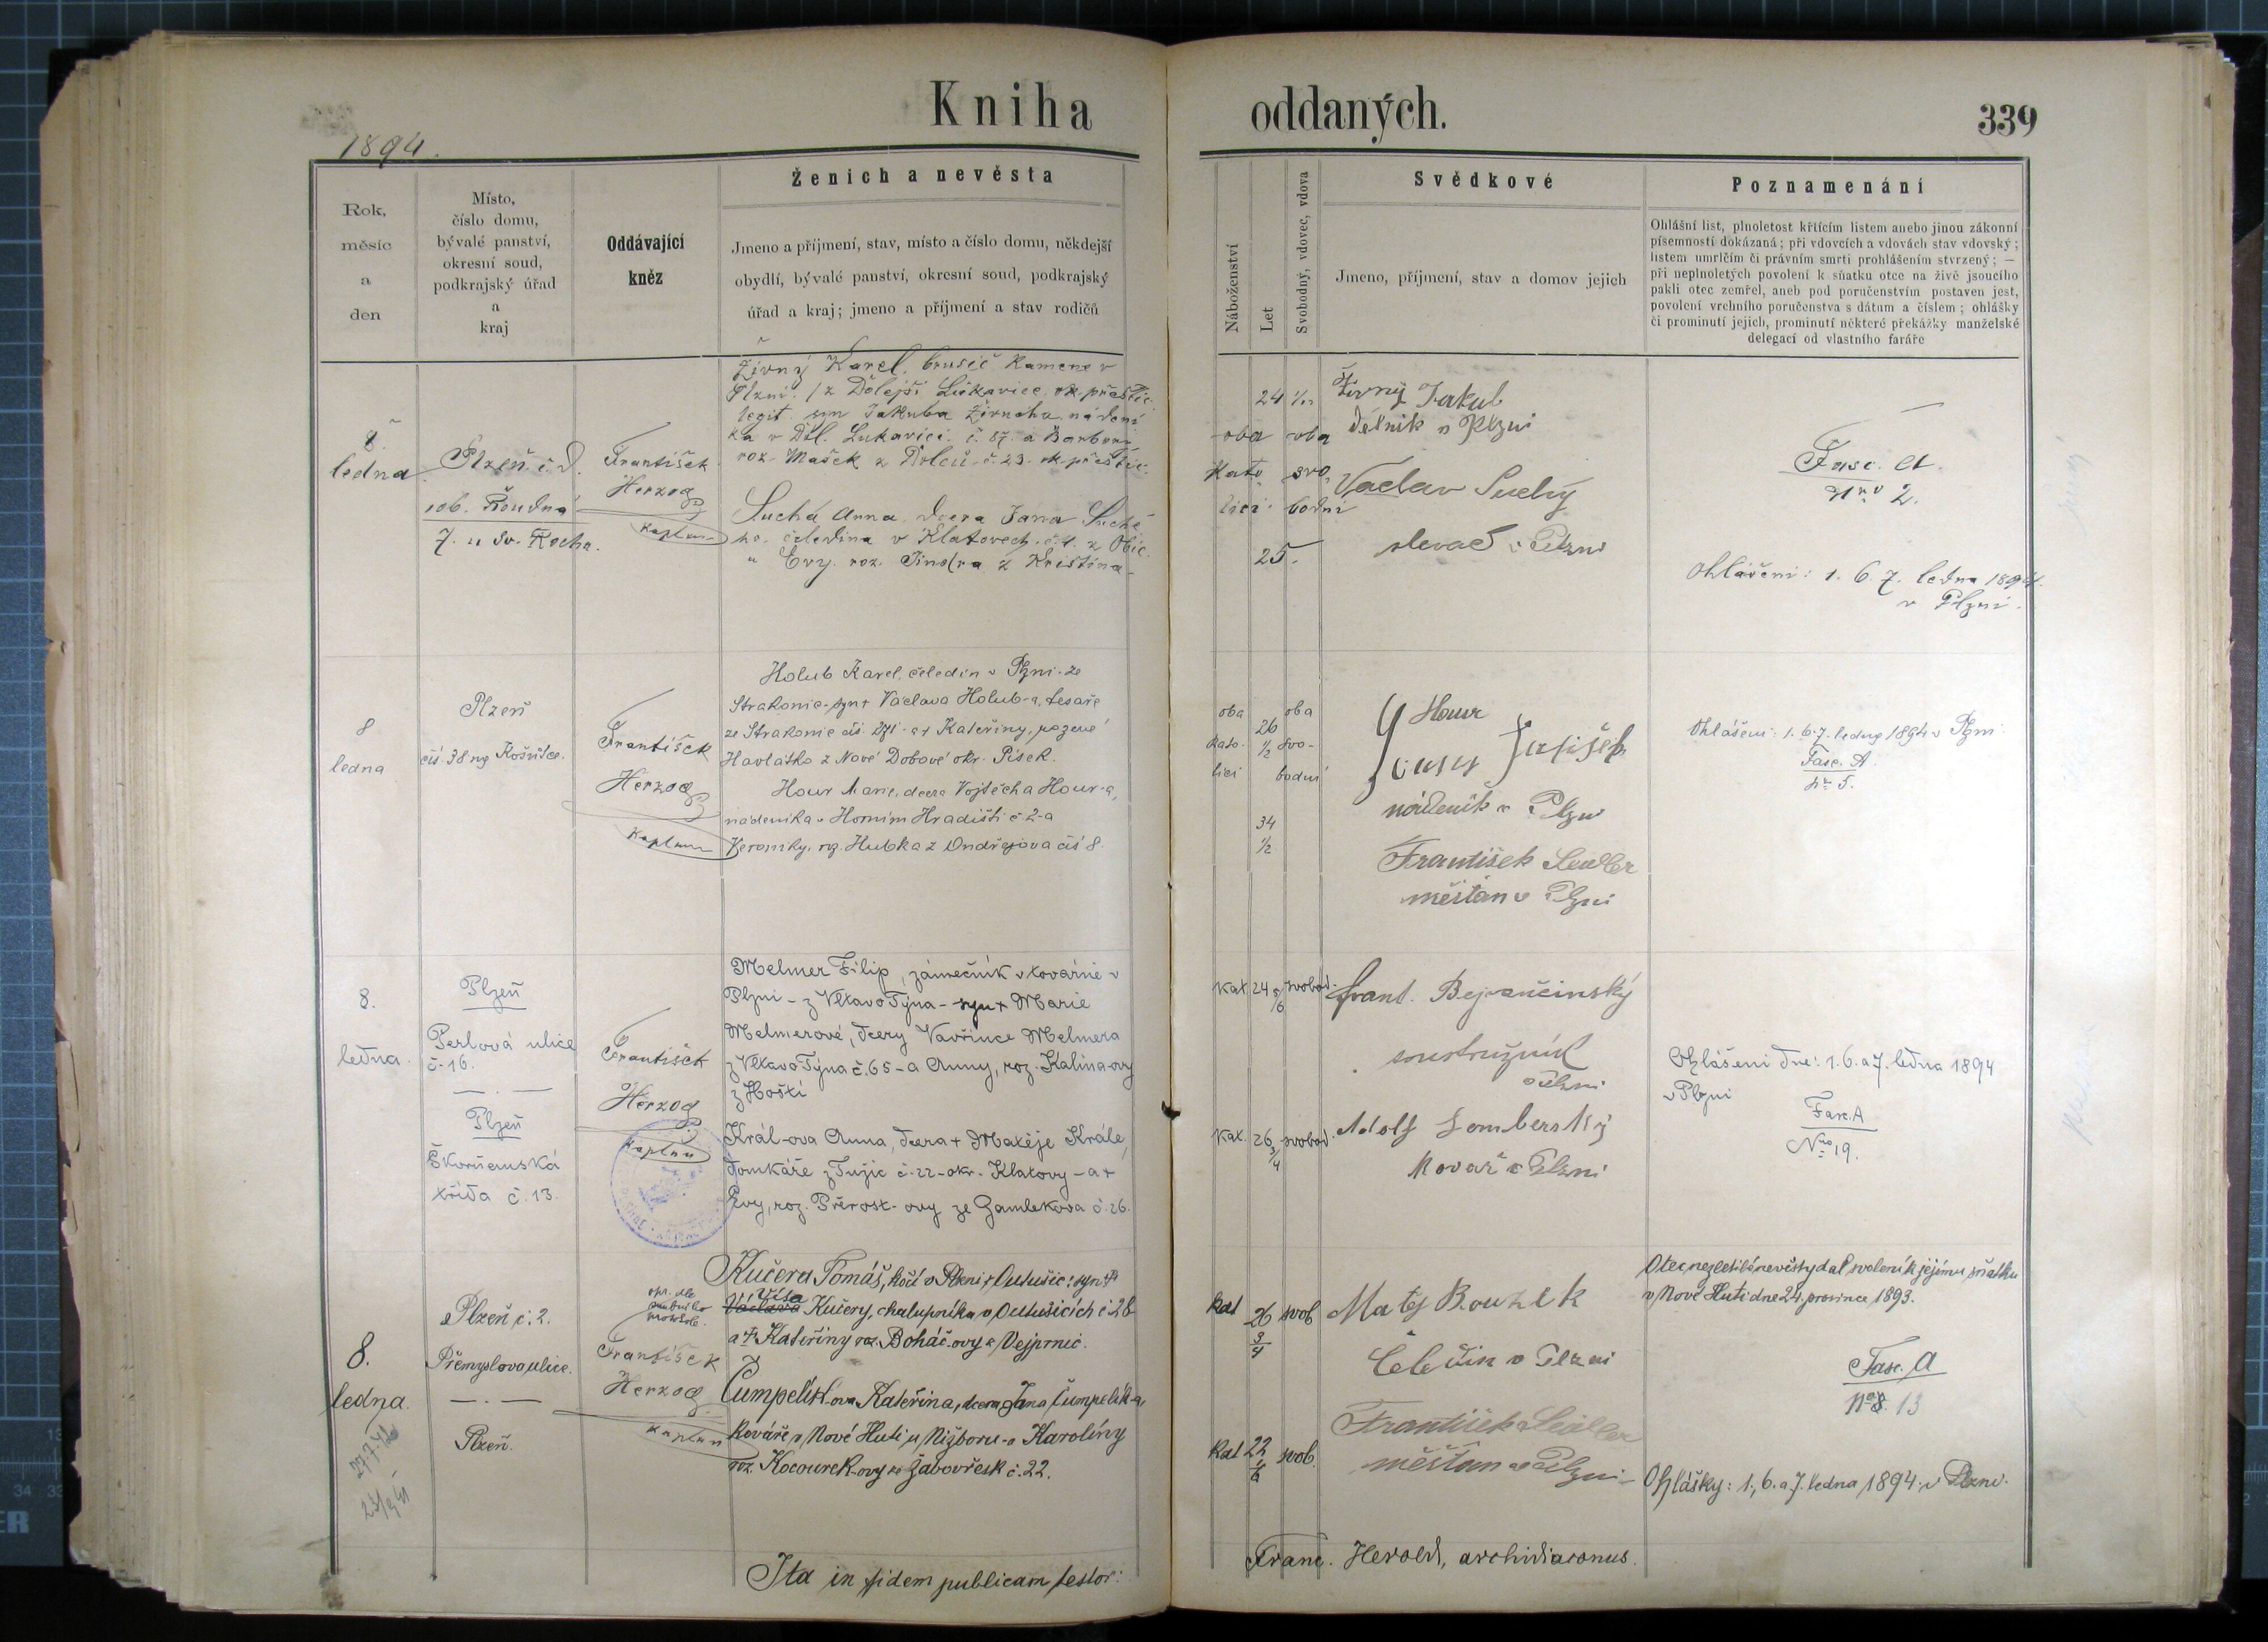 Kniha oddaných.
339
1894.
Rok,
měsíc
a
den
Místo,
číslo domu,
bývalé panství,
okresní soud,
podkrajský úřad
a
kraj
Oddávající
kněz
Ženich a nevěsta
Jmeno a příjmení, stav, místo a číslo domu, někdejší
obydlí, bývalé panství, okresní soud, podkrajský
úřad a kraj; jmeno a příjmení a stav rodičů
Náboženství
Let
Svobodný, vdovec, vdova
Svědkové
Jmeno, příjmení, stav a domov jejich
Poznamenání
Ohlášní list, plnoletost křticím listem anebo jinou zákonní
písemností dokázaná; při vdovcích a vdovách stav vdovský;
listem umrlčím či právním smrti prohlášením stvrzený; —
při neplnoletých povolení k sňatku otce na živě jsoucího
pakli otec zemřel, aneb pod poručenstvím postaven jest,
povolení vrchního poručenstva s dátum a číslem; ohlášky
či prominutí jejich, prominutí některé překážky manželské
delegací od vlastního faráře
8.
ledna
Plzeň č. d.
7. u Sv. Rocha.
František
Herzog
Kaplan
Živný Karel, brusič kamene v
Plzni z Dolejší Lukavice, ok. přeštic.
legit. syn Jakuba Živného nádení
ka v Dol. Lukavici č. 87. a Barbory
roz. Mašek z Dolců č. 23. ok. přeštic.
Suchá Anna, dcera Jana Suché
ho čeledína v Klatovech č. 4. z
Evy roz. Jindra z Kristína
oba
kato
lici
24
25.
oba
svo
bodni
Živný Jakub
dělník v Plzni
Václav Suchý
slevač v Plzni
Fasc. A.
Nro 2.
Ohlášení: 1. 6. 7. ledna 1894.
v Plzni.
8
ledna
Plzeň
čís 38
František
Herzog
Kaplan
Holub Karel, čeledín v Plzni ze
Strakonic syn + Václava Holub-a, tesaře
ze Strakonic čís. 271 a + Kateřiny, rozené
Havlátko z Nové Dobové okr. Písek.
Hour Marie, dcera Vojtěcha Hour-a,
nádeníka v Horním Hradišti č 2 a
Veroniky, rz. Hubka z Ondřejova čís 8.
oba
kato-
lici
26
1/2
34
1/2
oba
svo-
bodni
Hour
nádeník v Plzni
František Seidler
měšťan v Plzni
Ohlášení: 1. 6. 7. ledna 1894 v Plzni
Fasc. A.
Nro 5.
8.
ledna.
Plzeň
Perlová ulice
č. 16.
Plzeň
Škvrňanská
třída č. 13.
František
Herzog
Kaplan
Melmer Filip, zámečník v továrně v
Plzni – z Vltavo Týna – syn + Marie
Melmerové, dcery Vavřince Melmera
z Vltavo Týna č. 65 – a Anny, roz. Kalina-ovy
z Hoští
Král-ova Anna, dcera + Matěje Krále,
domkáře z Tužic č. 22 – okr. Klatovy – a +
Evy, roz. Přerost-ovy ze Gamlekova č. 26.
Kat
24 5/6
svobod.
Kat.
26 3/4
svobod.
Frant.
soustružník
v Plzni
Adolf Lomberský
Kovář v Plzni
Ohlášení dne: 1. 6. a 7. ledna 1894
v Plzni
Fasc. A
Nro 19.
8.
ledna.
Plzeň č. 2.
Přemyslova ulice.
Plzeň.
František
Herzog
Kaplan
Kučera Tomáš, kočí v Plzni z Outušic: syn +
Víta
Václava Kučery, chalupníka v Outušicích č. 28
a + Kateřiny roz. Boháč-ovy z Vejprnic.
Čumpelík-ova Kateřina, dcera Jana Čumpelík-a,
kováře v Nové Huti u Nižboru – a Karolíny
roz. Kocourek-ovy ze Žabovřesk č. 22.
Kat
26
3/4
svob
Kat
22
1/6
svob.
Matěj Bouzek
Čeledín v Plzni
František Seidler
měšťan v Plzni
Otec nezletilé nevěsty dal svolení k jejímu sňatku
v Nové Huti dne 24. prosince 1893.
Fasc. A
Nro 13
Ohlášky: 1., 6. a 7. ledna 1894 v Plzni.
Ita in fidem publicam testor:
Franc. Herold, archidiaconus.